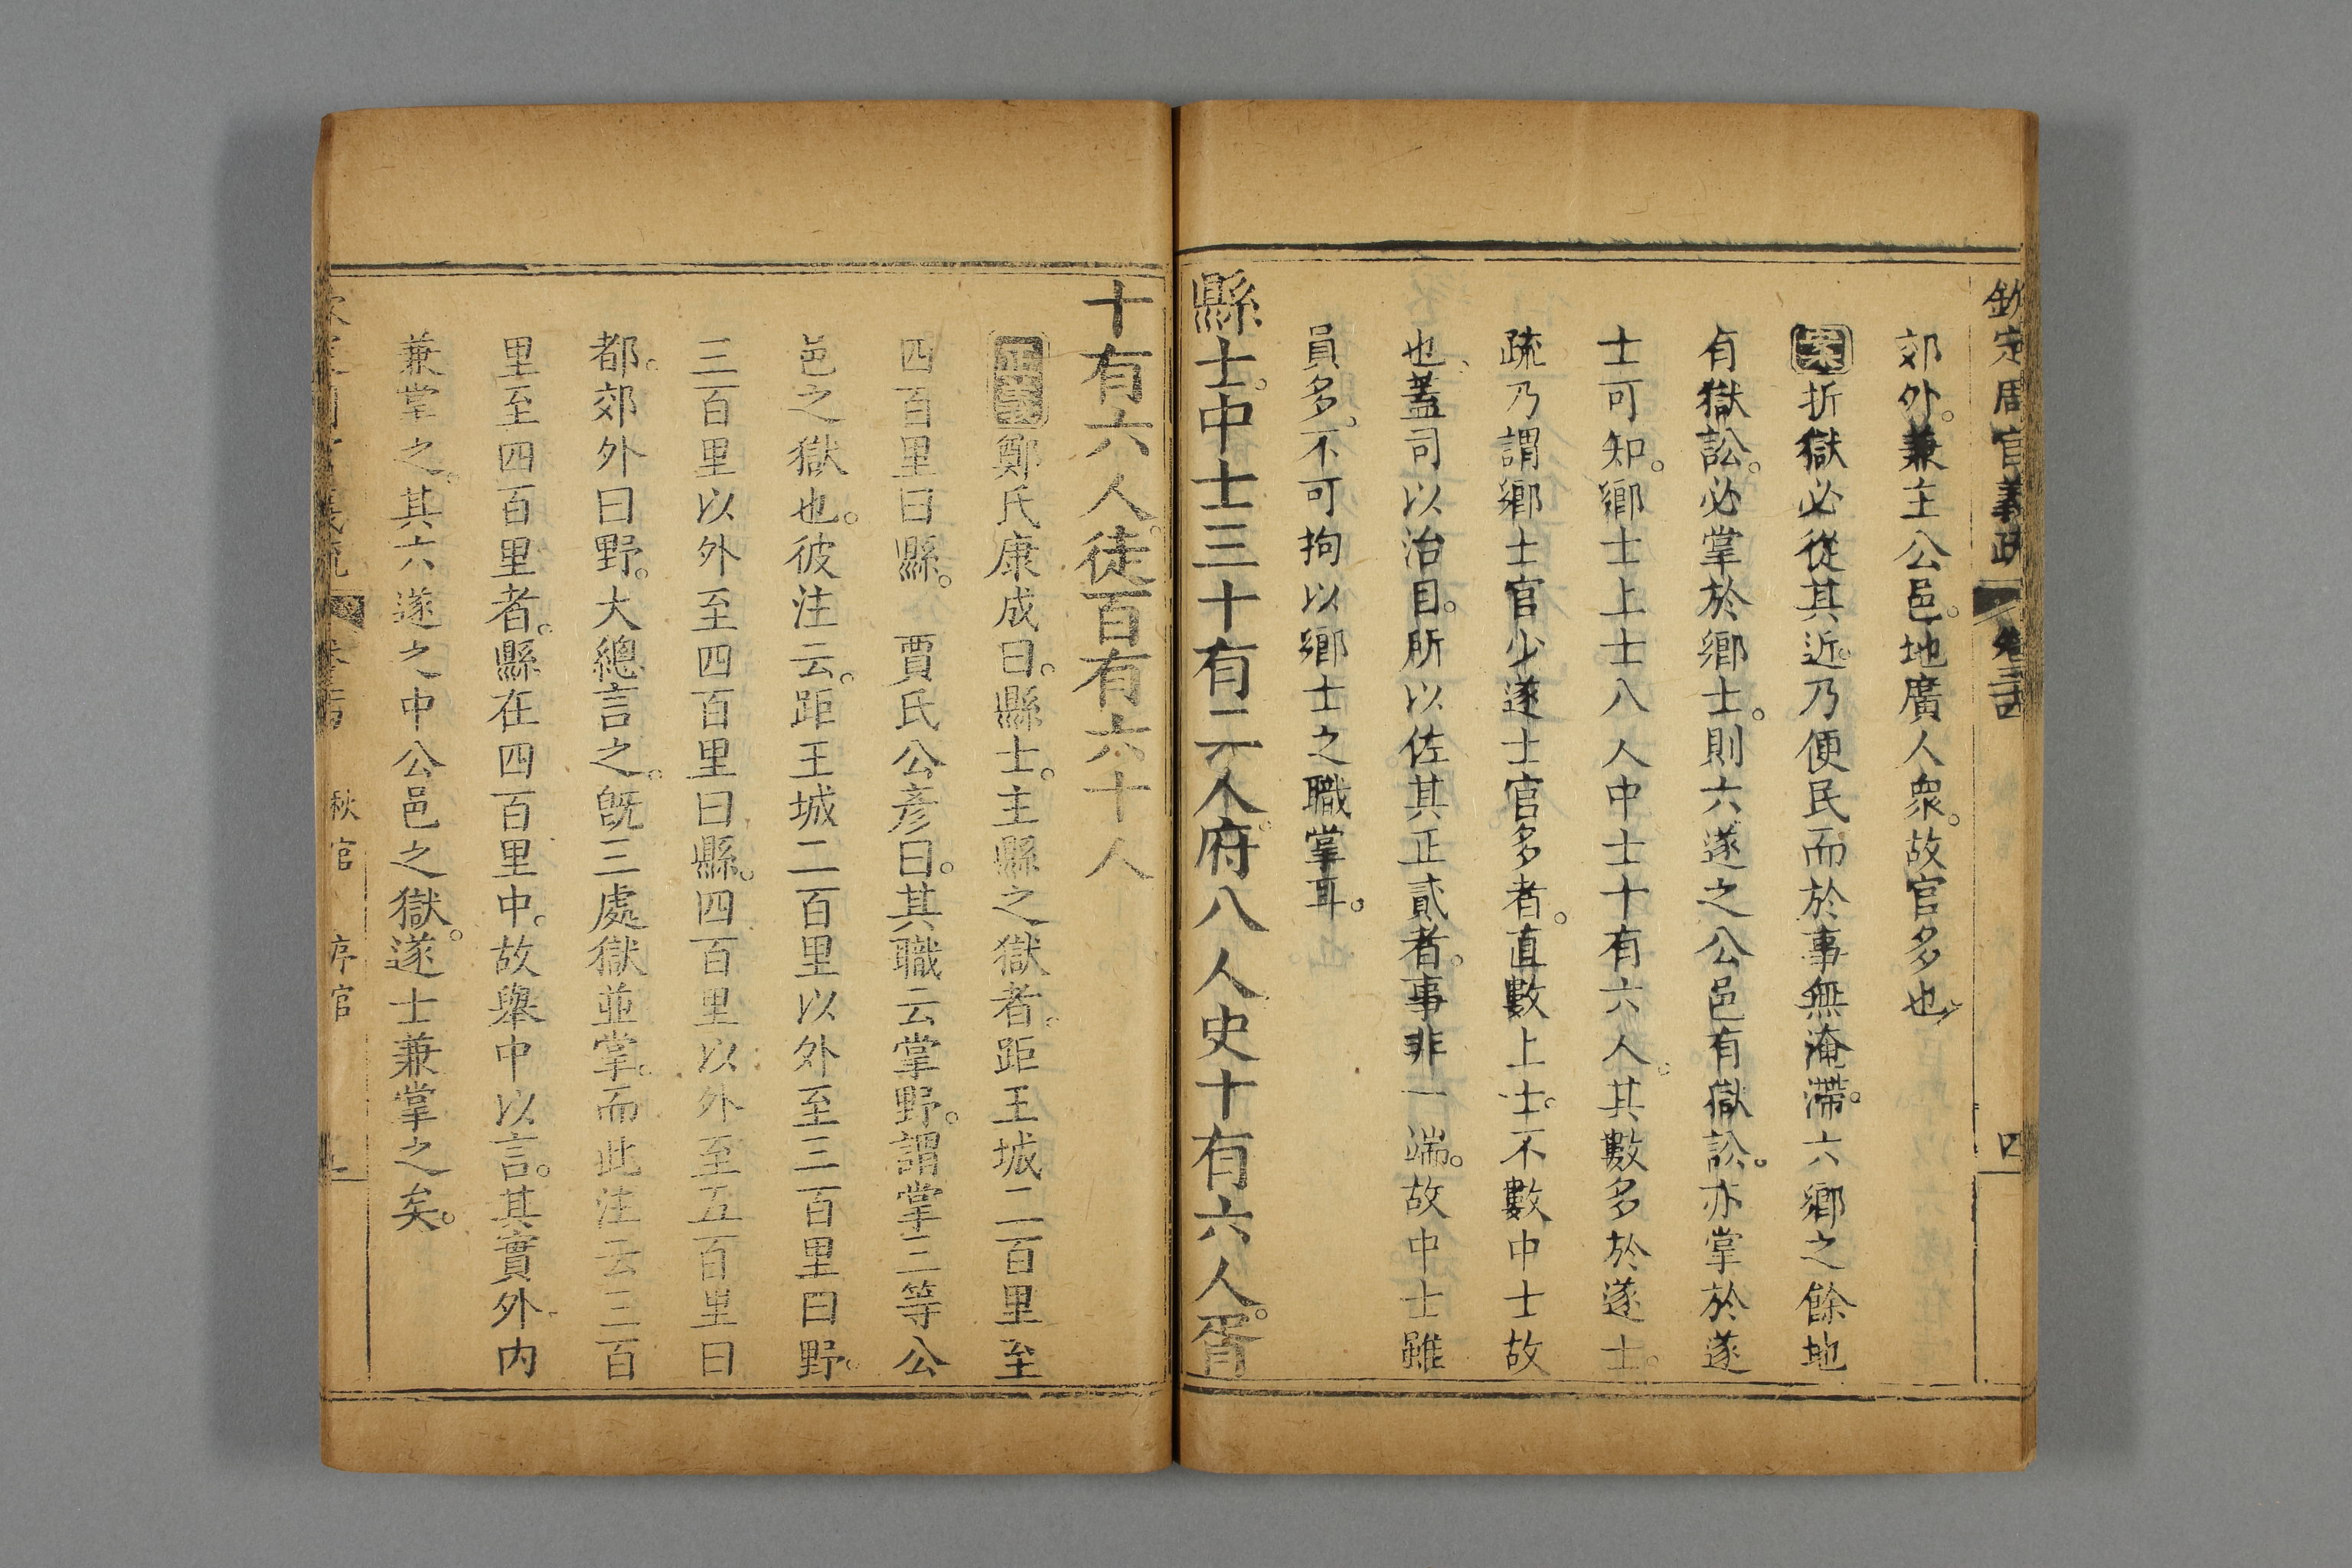 欽定周官義疏 卷三十四 四
郊外。兼主公邑。地廣人衆。故官多也。
案折獄必從其近。乃便民而於事無淹滯。六鄉之餘地
有獄訟。必掌於鄉士。則六遂之公邑有獄訟。亦掌於遂
士可知。鄉士上士八人中士十有六人。其數多於遂士。
疏乃謂鄉士官少遂士官多者。直數上士。不數中士故
也。蓋司以治目。所以佐其正貳者。事非一端。故中士雖
員多。不可拘以鄉士之職掌耳。
縣士。中士三十有二人。府八人史十有六人。胥
十有六人。徒百有六十人
正義鄭氏康成曰。縣士。主縣之獄者。距王城二百里至
四百里曰縣。 賈氏公彥曰。其職云掌野。謂掌三等公
邑之獄也。彼注云。距王城二百里以外至三百里曰野。
三百里以外至四百里曰縣。四百里以外至五百里曰
都。郊外曰野。大總言之。旣三處獄並掌。而此注云三百
里至四百里者。縣在四百里中。故舉中以言。其實外内
兼掌之。其六遂之中公邑之獄。遂士兼掌之矣。
秋官 序官